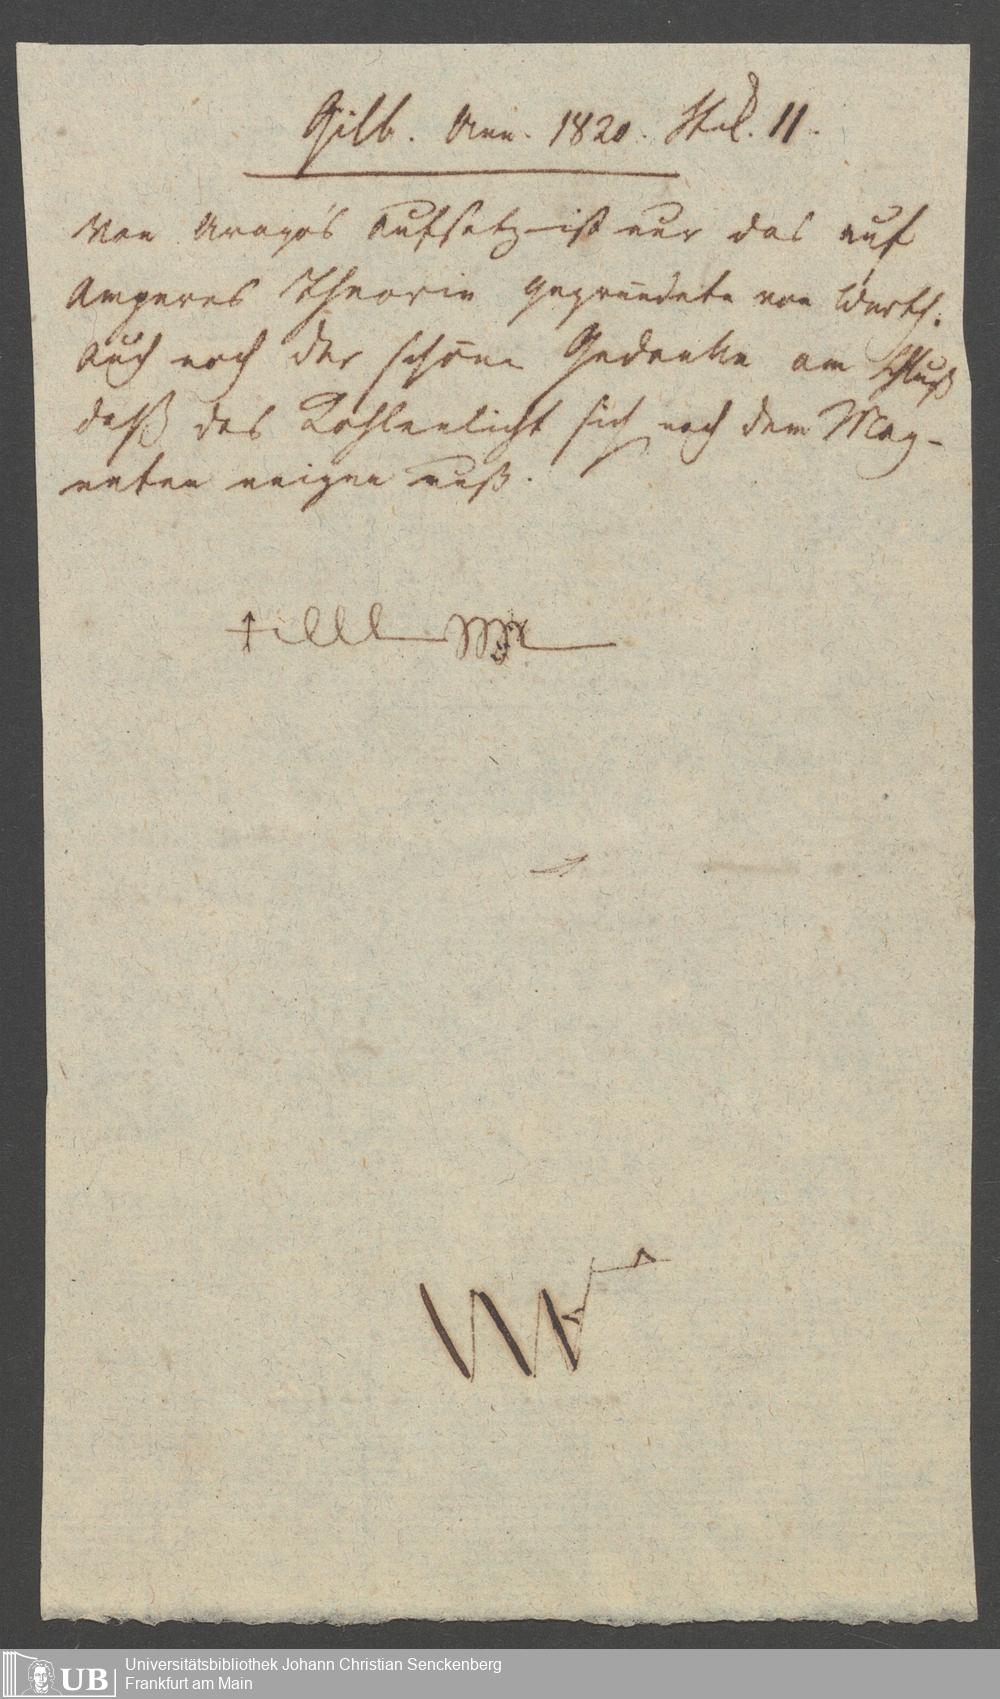 Gilb. Ann. 1820. Stck. 11.
Von Aragos Aufsatz ist nur das auf
Amperes Theorie gegründete von Werth.
Auch noch der schöne Gedanke am Schluß
daß das Kohlenlicht sich nach dem Mag-
neten neigen muß.
UB
Universitätsbibliothek Johann Christian Senckenberg
Frankfurt am Main